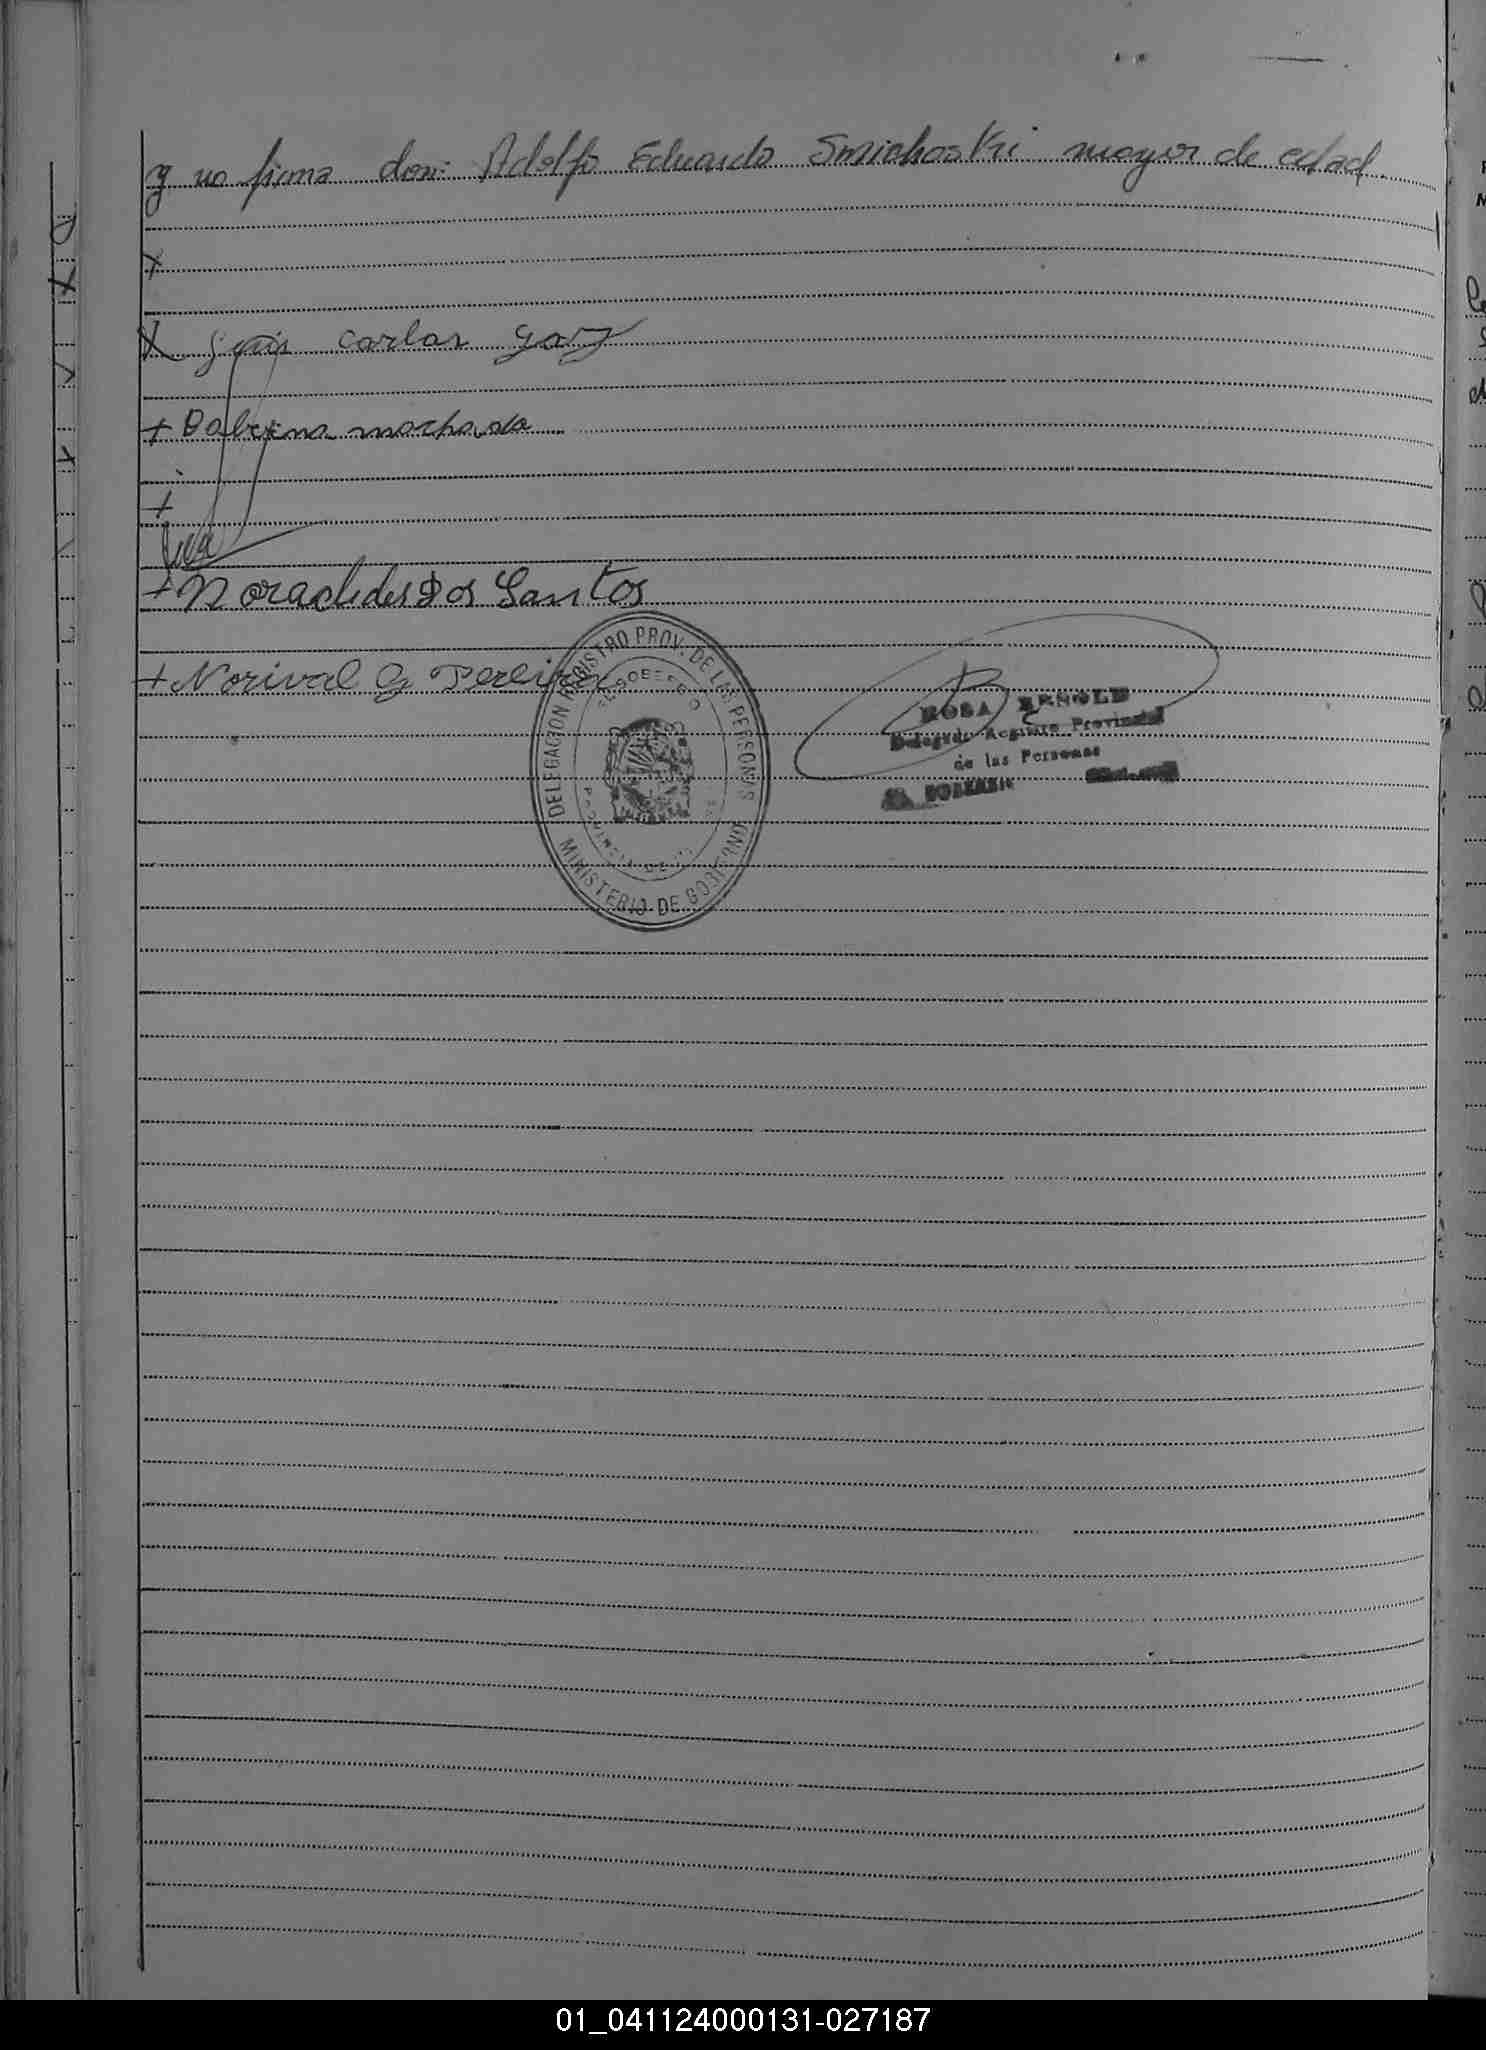 y no firma don: Adolfo Eduardo Smichoski mayor de edad.
X
X Luis Carlos Garz
+ Balbina Machado
+
+ Noraclides Dos Santos
+ Norival G Pereira
DELEGACION REGISTRO PROV. DE LAS PERSONAS
EL SOBERBIO
PROVINCIA DE
MINISTERIO DE GOBIERNO
ROSA
Delegada Registro Provincial
de las Personas
EL SOBERBIO
01_041124000131-027187